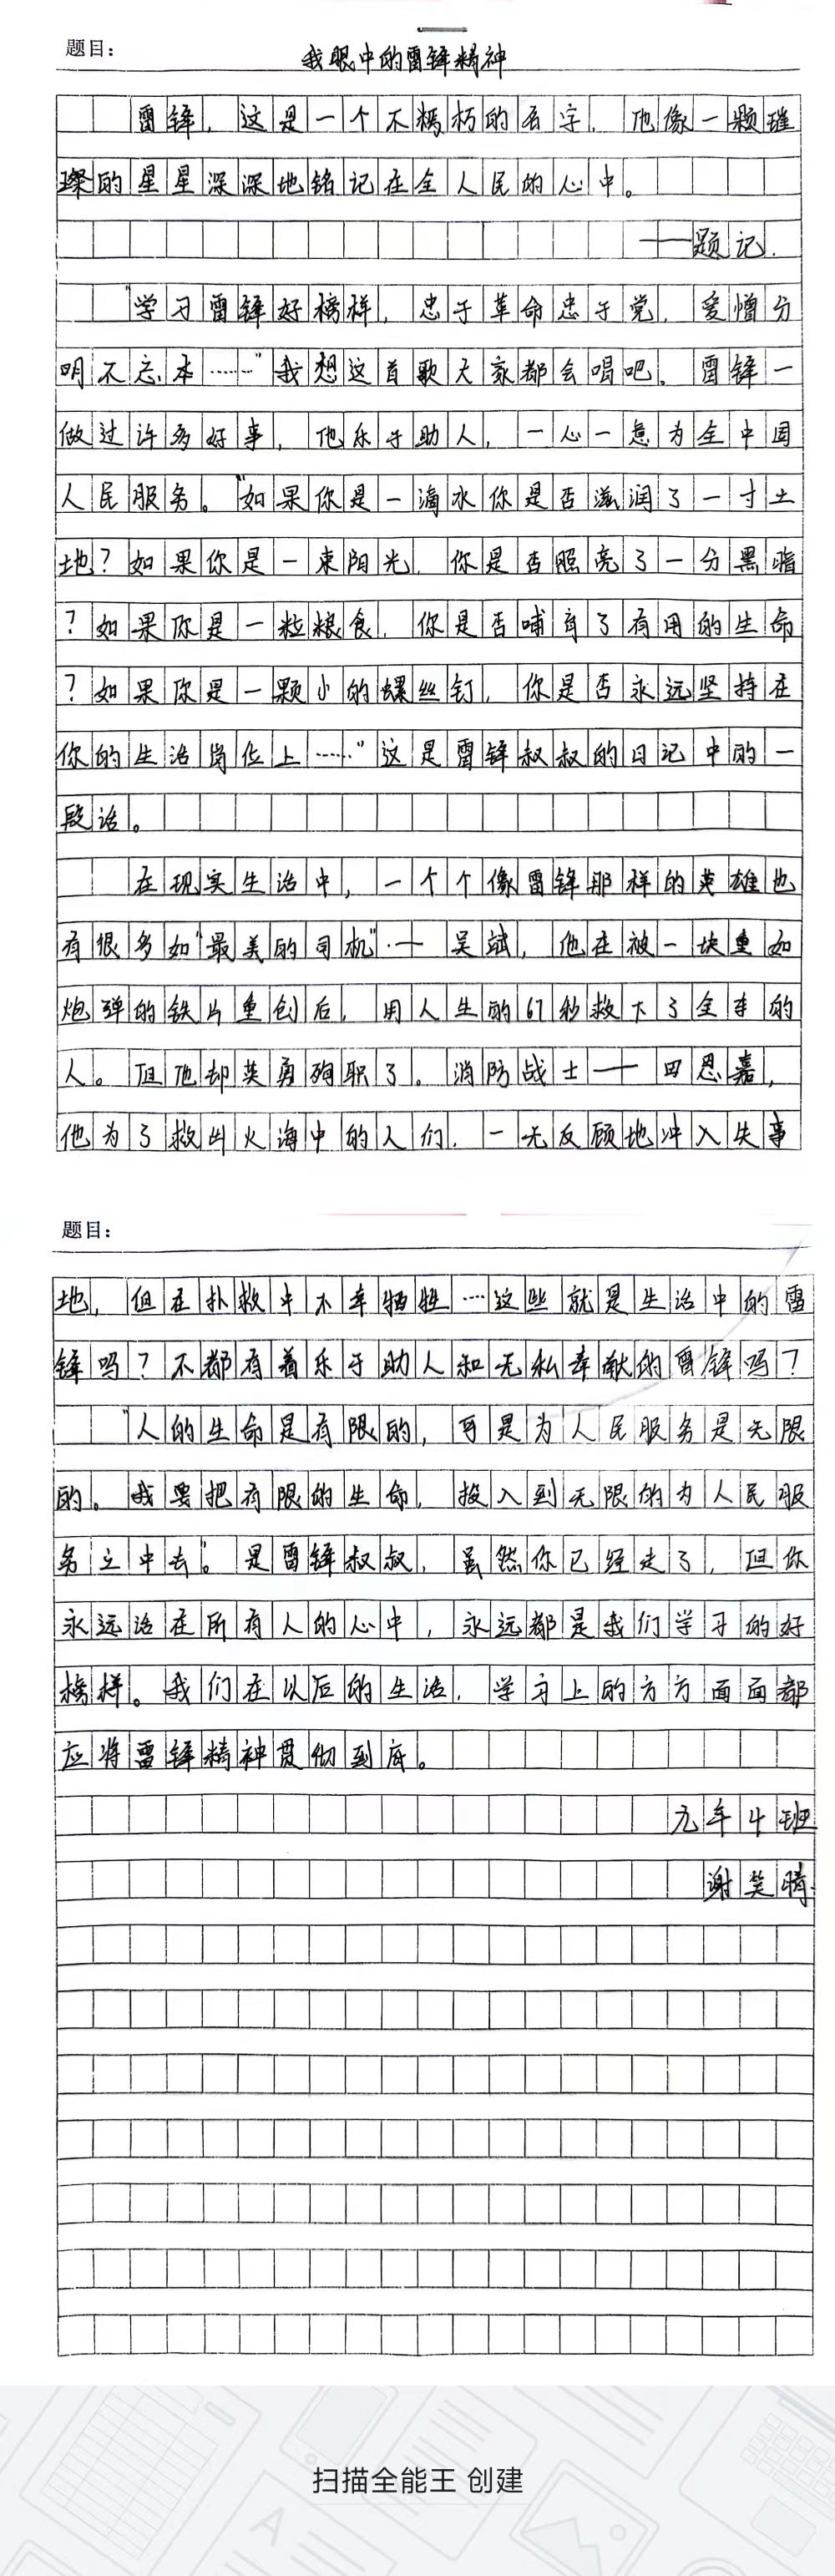 题目：
我眼中的雷锋精神
雷锋，这是一个不朽的名字，他像一颗璀
璨的星星深深地铭记在全人民的心中。
——题记.
“学习雷锋好榜样，忠于革命忠于党，爱憎分
明不忘本……”我想这首歌大家都会唱吧。雷锋一
做过许多好事，他乐于助人，一心一意为全中国
人民服务。“如果你是一滴水你是否滋润了一寸土
土地？如果你是一束阳光，你是否照亮了一分黑暗
？如果你是一粒粮食，你是否哺育了有用的生命
？如果你是一颗小的螺丝钉，你是否永远坚持在
你的生活岗位上……”这是雷锋叔叔的日记中的一
段话。
在现实生活中，一个个像雷锋那样的英雄也
有很多如“最美的司机”·—吴斌，他在被一块重如
炮弹的铁片重创后，用人生的67秒救下了全车的
人。但他却英勇殉职了。消防战士——田思嘉，
他为了救出火海中的人们，一无反顾地冲入失事
题目：
地，但在扑救中不幸牺牲…这些就是生活中的雷
锋吗？不都有着乐于助人和无私奉献的雷锋吗？
“人的生命是有限的，可是为人民服务是无限
的。我要把有限的生命，投入到无限的为人民服
务立中去”。是雷锋叔叔，虽然你已经走了，但你
永远活在所有人的心中，永远都是我们学习的好
榜样。我们在以后的生活，学习上的方方面面都
应将雷锋精神贯彻到底。
九年4班
谢笑晴.
扫描全能王 创建